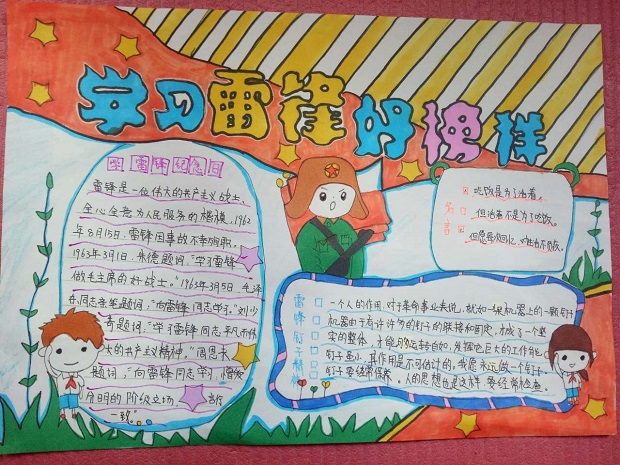 学习雷锋好榜样
学雷锋纪念日
雷锋是一位伟大的共产主义战士,
全心全意为人民服务的楷模,1962
年8月15日,雷锋因事故不幸殉职。
1963年3月1日,朱德题词:"学习雷锋
做毛主席的好战士。"1963年3月5日,毛泽
东同志亲笔题词:"向雷锋同志学习。"刘少
奇题词:"学习雷锋同志平凡而伟
大的共产主义精神。"周恩来
题词:"向雷锋同志学习,憎爱
分明的阶级立场 言行
一致"
吃饭是为了活着,
但活着不是为了吃饭。
名言
雷锋钉子精神
一个人的作用,对于革命事业来说,就如一架机器上的一颗钉
机器由于有许许多多的钉子的联接和固定,才成了一个坚
实的整体,才能运转自如,发挥它巨大的工作能
钉子虽小,其作用是不可估计的,我愿永远做一个钉子
钉子要经常保养,人的思想也是这样 要经常检查。